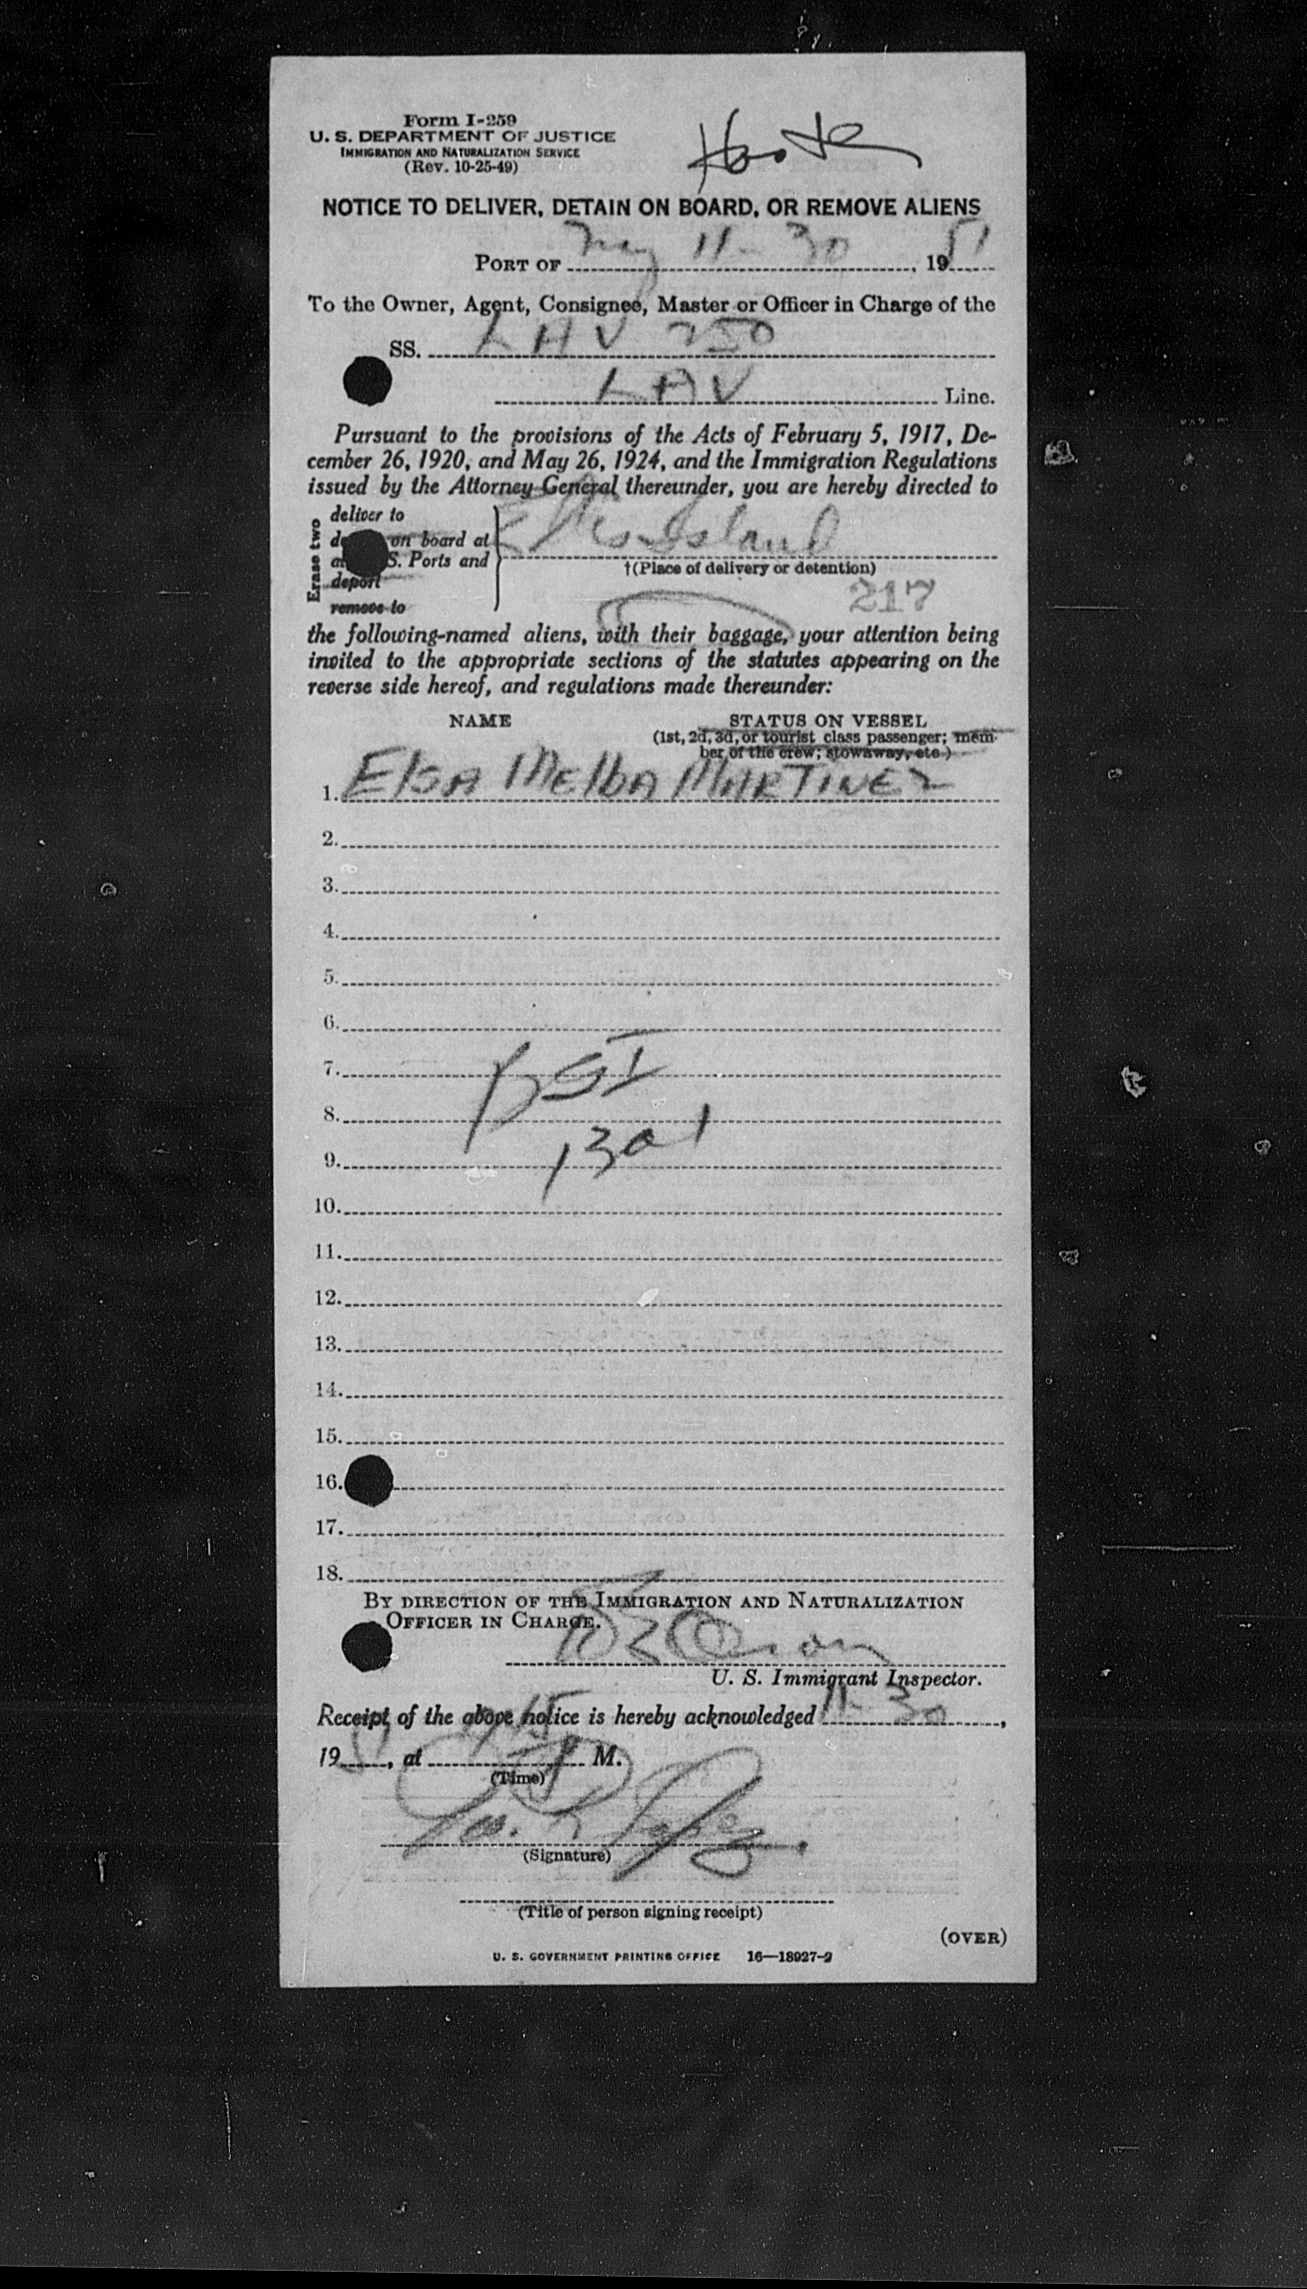 Form I-259
U. S. DEPARTMENT OF JUSTICE
IMMIGRATION AND NATURALIZATION SERVICE
(Rev. 10-25-49)
NOTICE TO DELIVER, DETAIN ON BOARD, OR REMOVE ALIENS
PORT OF NY 11-30, 1951
To the Owner, Agent, Consignee, Master or Officer in Charge of the
SS. LAV 250
LAV Line.
Pursuant to the provisions of the Acts of February 5, 1917, De-
cember 26, 1920, and May 26, 1924, and the Immigration Regulations
issued by the Attorney General thereunder, you are hereby directed to
Erase two
deliver to
on board at
S. Ports and
deport
remove to
Ellis Island
†(Place of delivery or detention)
217
the following-named aliens, with their baggage, your attention being
invited to the appropriate sections of the statutes appearing on the
reverse side hereof, and regulations made thereunder:
NAME STATUS ON VESSEL
(1st, 2d, 3d, or tourist class passenger; mem-
ber of the crew; stowaway, etc.)
1. Elsa Melba Martinez
2.
3.
4.
5.
6.
7. BSI
8.
9. 1301
10.
11.
12.
13.
14.
15.
16.
17.
18.
BY DIRECTION OF THE IMMIGRATION AND NATURALIZATION
OFFICER IN CHARGE.
U. S. Immigrant Inspector.
Receipt of the above notice is hereby acknowledged 11-30,
1951, at P M.
(Time)
(Signature)
(Title of person signing receipt)
(OVER)
U. S. GOVERNMENT PRINTING OFFICE 16—18927-2